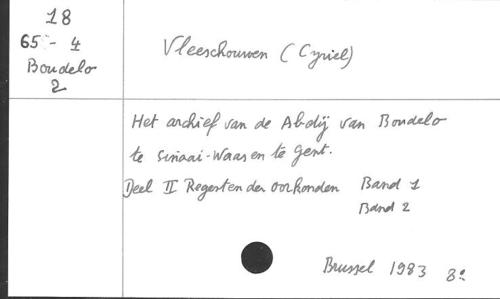 18
65 - 4
Boudelo
2
Vleeschouwen (Cyriel)
Het archief van de Abdij van Boudelo
te Sinaai-Waas en te Gent.
Deel II Regesten der oorkonden Band 1
Band 2
Brussel 1983 8°